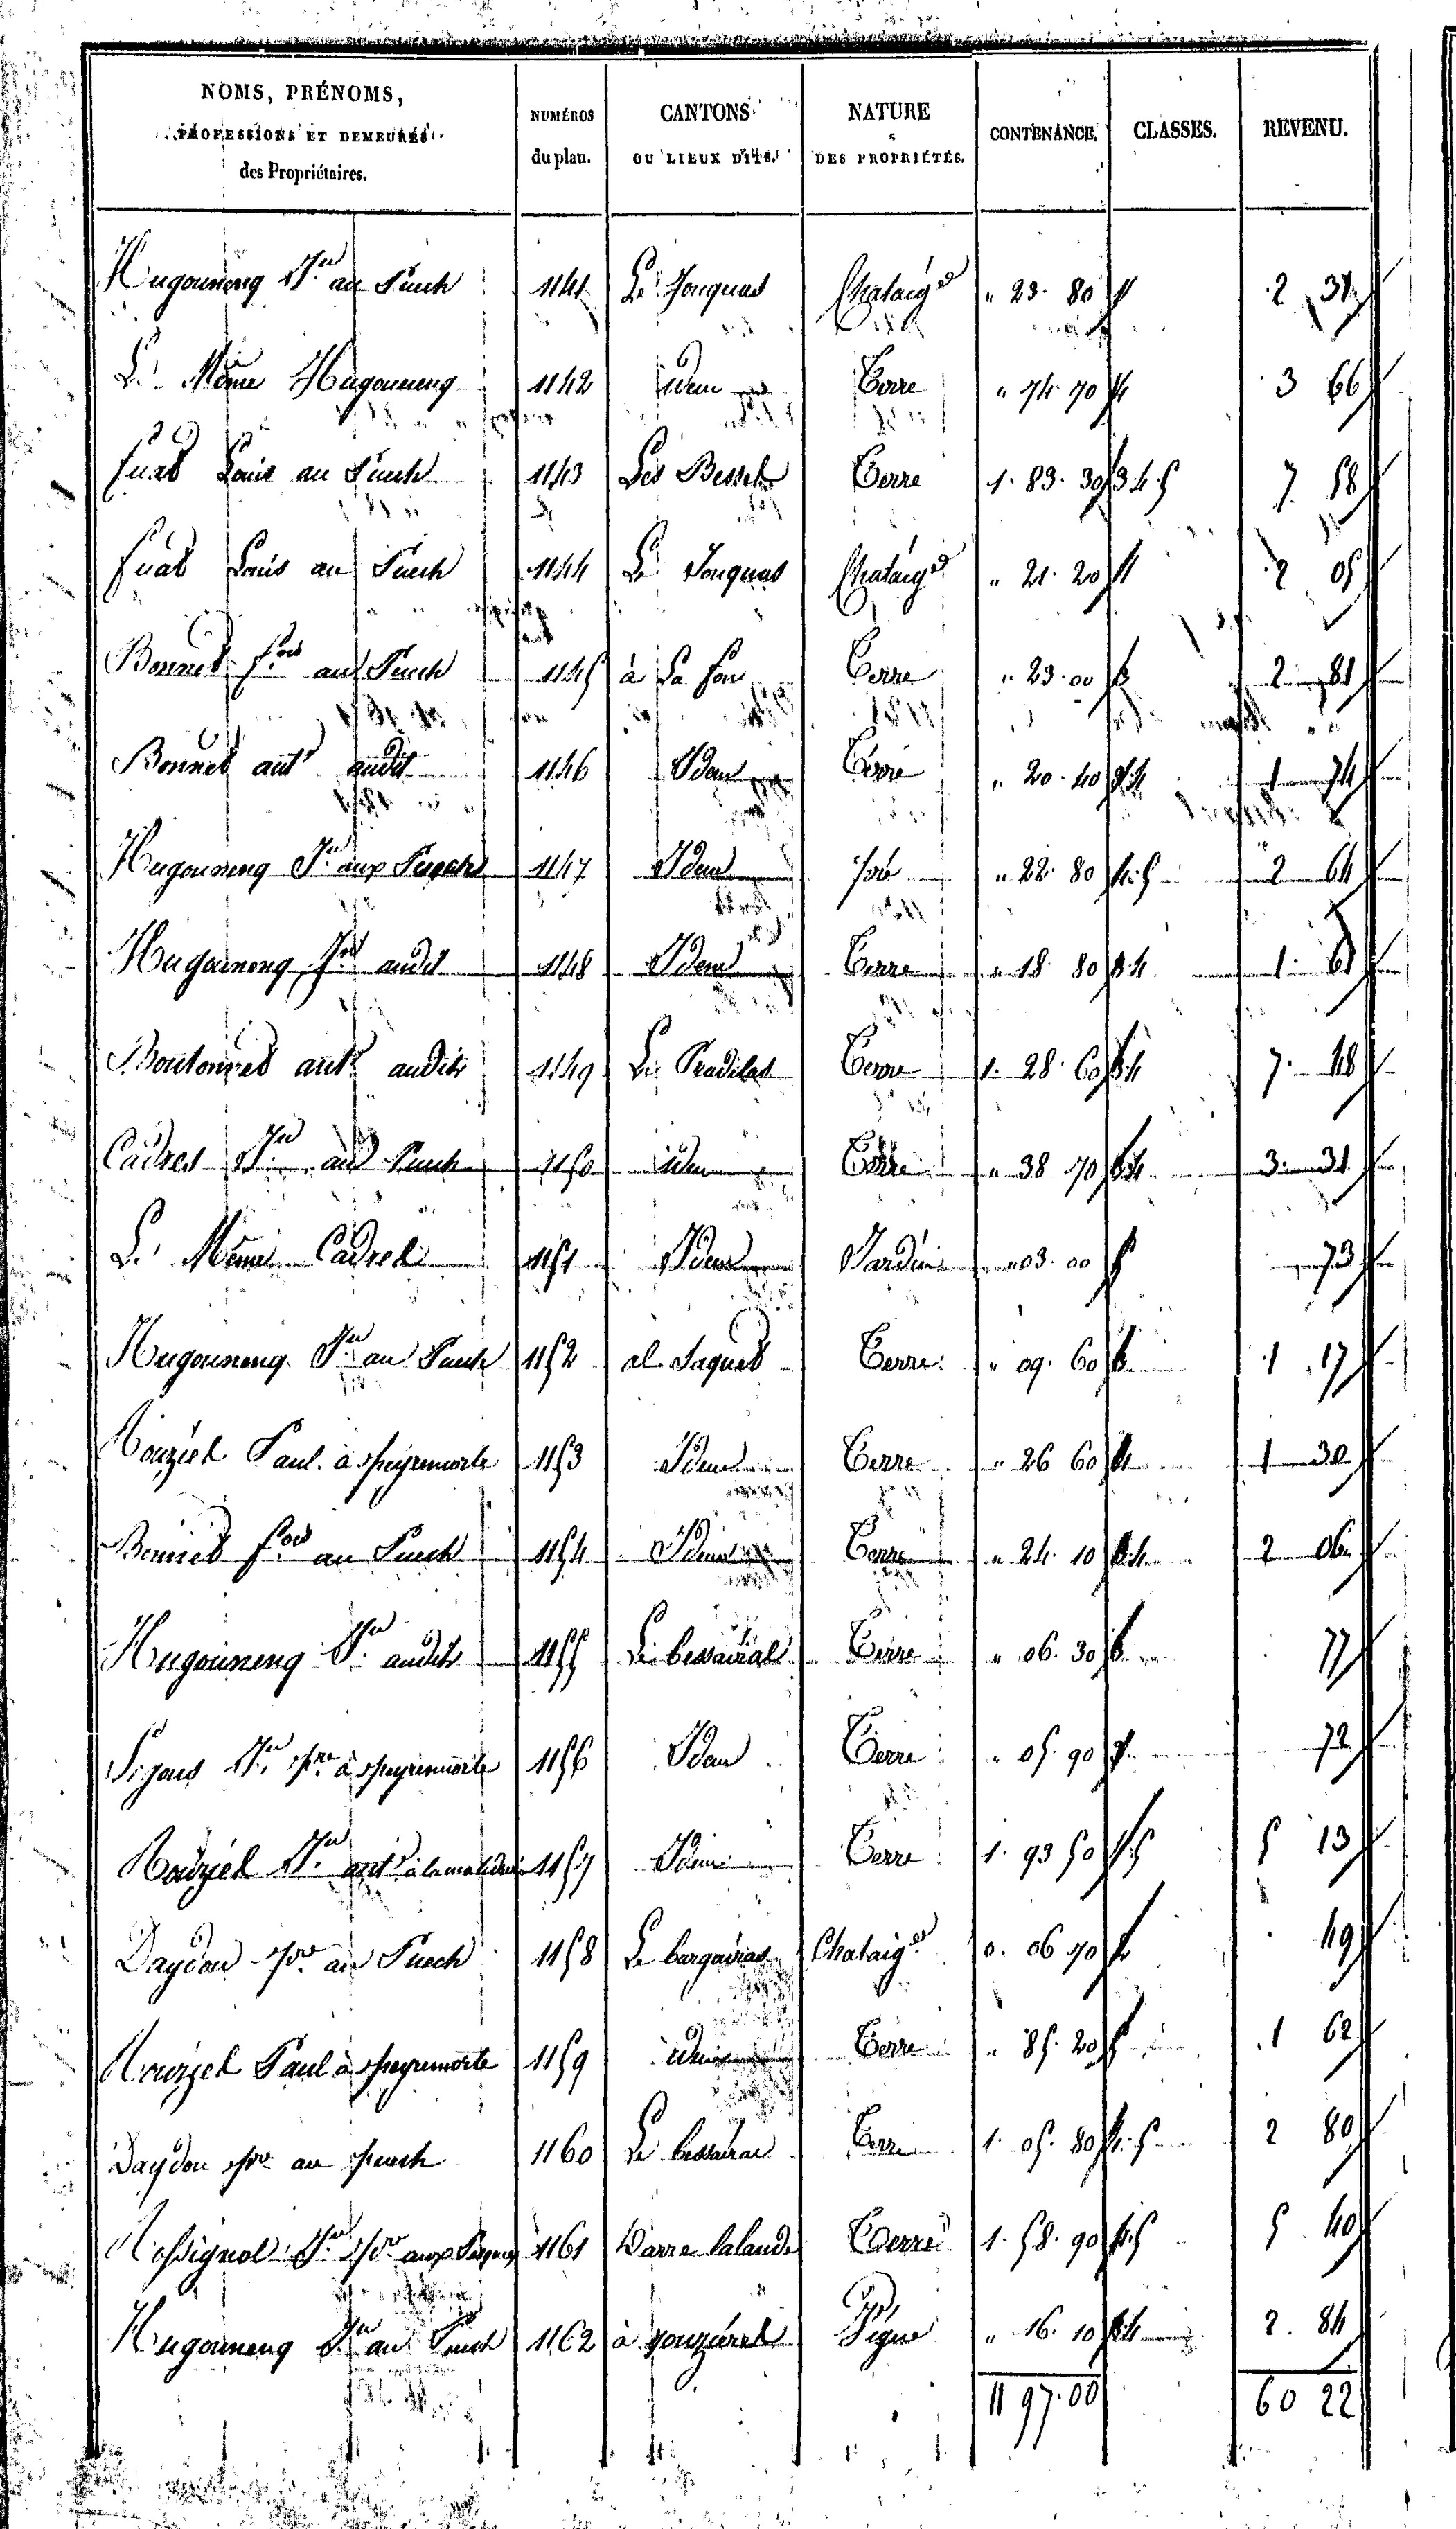 NOMS, PRÉNOMS,
PROFESSIONS ET DEMEURES
des Propriétaires.
NUMÉROS
du plan.
CANTONS
OU LIEUX DITS.
NATURE
DES PROPRIÉTÉS.
CONTENANCE.
CLASSES.
REVENU.
Hugouneng Jn au Puech 1141 Le Jonquas Chataigs " 23. 80 2
Le Même Hugouneng 1142 idem Terre " 74 70 4 3 66
Louis au Puech 1143 Les Bessets Terre 1. 83. 30 3.4.5 7 58
Louis au Puech 1144 Le Jonquas Chataigs " 21. 20 2 05
Bonnet fois au Puech 1145 à La fon Terre " 23. 00 3 2 81
Bonnet ant audit 1146 Idem Terre " 20. 40 3.4 1 74
Hugouneng Jn aux 1147 Idem " 22. 80 4.5 2 64
Hugouneng audit 1148 Idem Terre " 18 80 3.4 1. 61
Boutonnet ant audit 1149 Le Pradelas Terre 1. 28. 60 3.4 7. 48
Cadres Jn au Puech 1150 idem Terre " 38 70 3.4 3 31
Le Même Cadres 1151 Idem Jardin " 03. 00 73
Hugouneng Jn au Puech 1152 al Saquet Terre " 09. 60 3 1 17
Mouziel Paul à Peyremorte 1153 Idem Terre " 26 60 4 1 30
Bonnet fois au Puech 1154 Idem Terre " 24. 10 3.4 2 06
Hugouneng Jn audit 1155 Le bessairal Terre " 06. 30 3 77
Jn Pre à Peyremorte 1156 Idem Terre " 05. 90 72
Mouziel Jn ant 1157 Idem Terre 1. 93 50 4.5 5 13
Daydou Pre au Puech 1158 Le bargairas Chataigs 0. 06 70 49
Mouziel Paul à Peyremorte 1159 idem Terre " 85. 20 5 1 62
Daydou Pre au Puech 1160 Le bessairac Terre 1. 05. 80 4.5 2 80
Rossignol Jn Pre aux 1161 Darre lalande Terre 1. 58. 90 4.5 5 40
Hugouneng Jn au Puech 1162 à Vigne " 16. 10 3.4 2. 84
11 97. 00 60 22